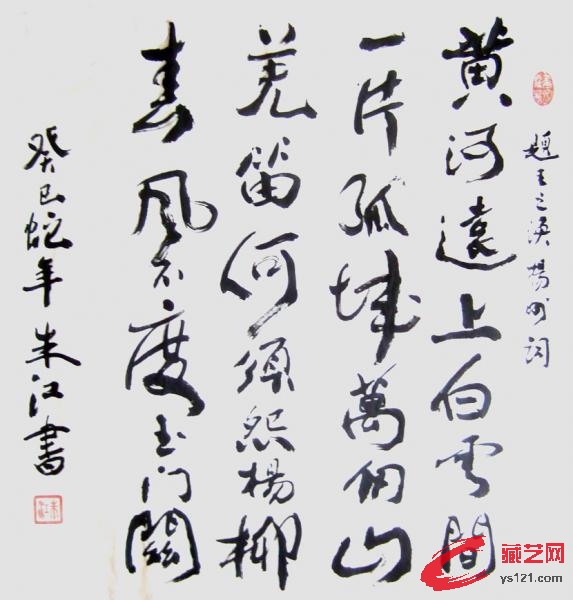 題王之渙楊州詞
黄河遠上白雲間
一片孤城萬仞山
羌笛何須怨楊柳
春風不度玉门關
癸巳蛇年朱江書
朱江
藏艺网
ys121.com